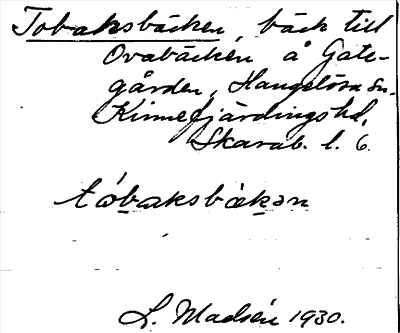 Tobaksbäcken, bäck till
Ovabäcken å Gate-
gården, Hangelösa sn.
Kinnefjärdingshd,
Skarab. l. 6.
tóbaksbäkən
L. Madsén 1930.